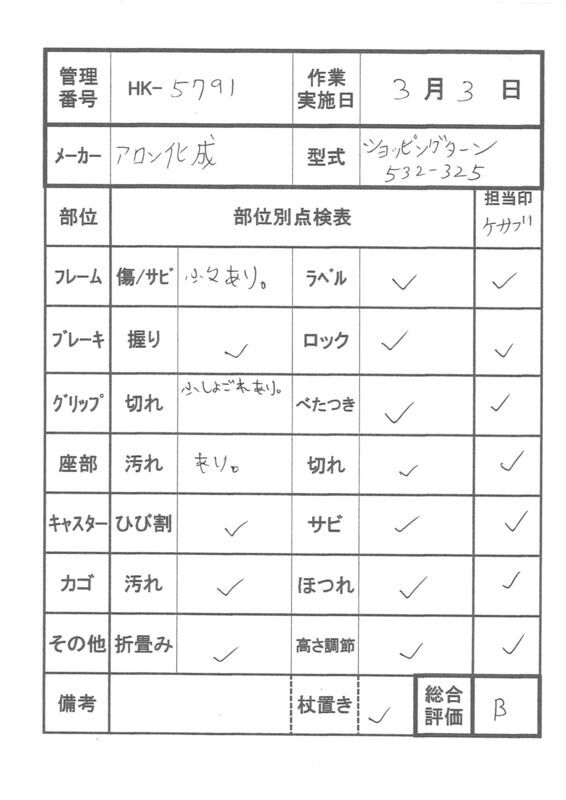 管理番号 HK-5791 作業実施日 3月3日
メーカー アロン化成 型式 ショッピングターン
532-325
部位 部位別点検表 担当印
ケサブリ
フレーム 傷/サビ 少々あり。 ラベル ✓ ✓
ブレーキ 握り ✓ ロック ✓ ✓
グリップ 切れ 少しよごれあり。 べたつき ✓ ✓
座部 汚れ あり。 切れ ✓ ✓
キャスター ひび割 ✓ サビ ✓ ✓
カゴ 汚れ ✓ ほつれ ✓ ✓
その他 折畳み ✓ 高さ調節 ✓ ✓
備考 杖置き ✓ 総合評価 B